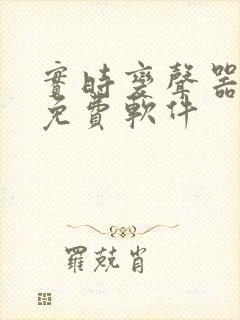 實時變聲器
免費軟件
羅兢肖